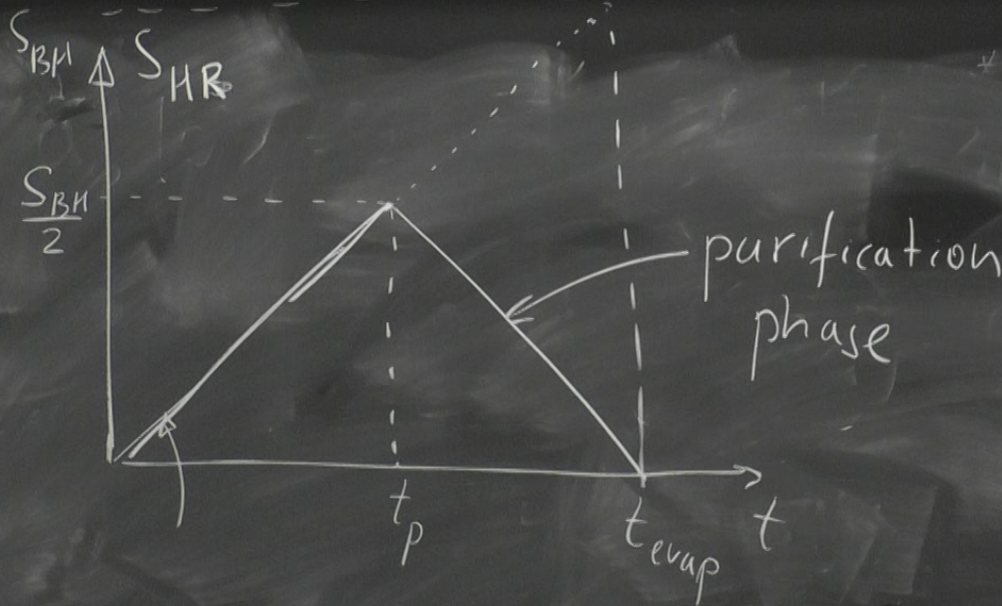 S_BH
S_HR
S_BH
2
purification
phase
t_p
t_evap
t